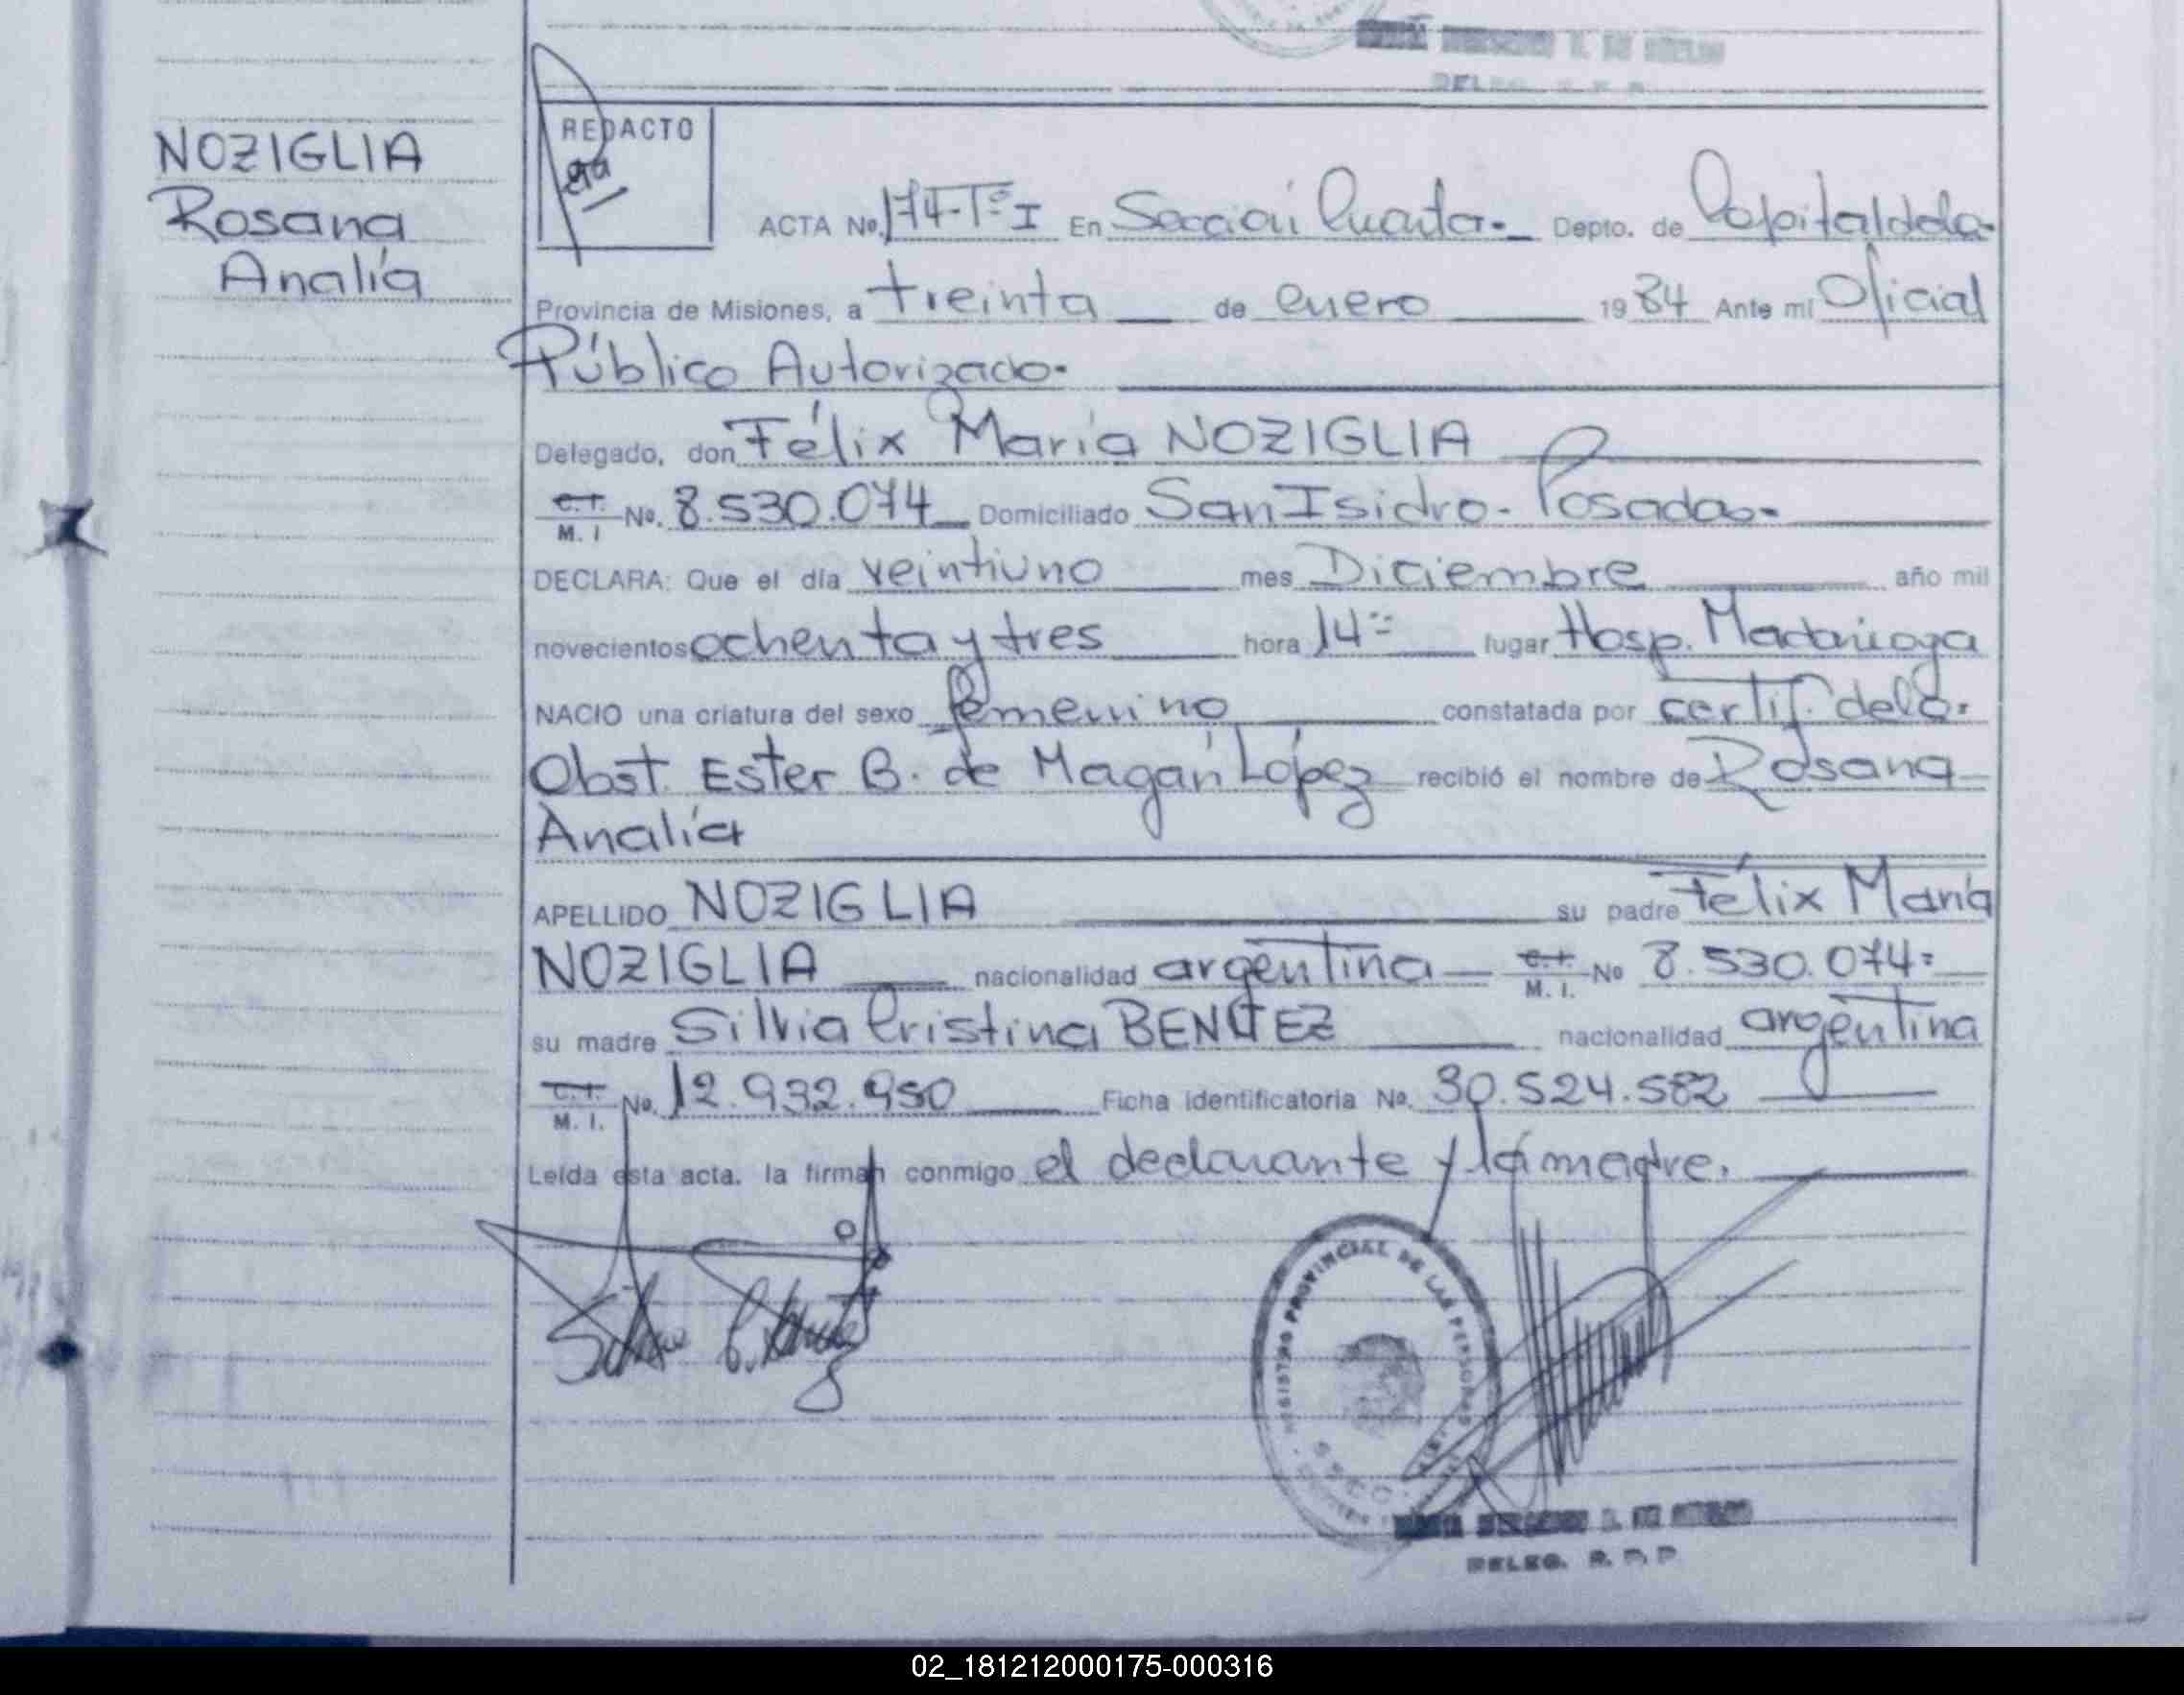 NOZIGLIA
Rosana
Analía
REDACTO
ACTA No. 174-Tº I En Sección Cuarta.- Depto. de Capital de la
Provincia de Misiones, a treinta de enero 1984 Ante mi Oficial
Público Autorizado.
Delegado, don Félix María NOZIGLIA
C.I.
M. I No. 8.530.074 Domiciliado San Isidro - Posadas.
DECLARA: Que el día veintiuno mes Diciembre año mil
novecientos ochenta y tres hora 14 lugar Hosp. Madariaga
NACIO una criatura del sexo femenino constatada por certif. de la
Obst. Ester B. de Magán López recibió el nombre de Rosana
Analía
APELLIDO NOZIGLIA su padre Félix María
NOZIGLIA nacionalidad argentina C.I.
M. I. No 8.530.074
su madre Silvia Cristina BENITEZ nacionalidad argentina
C.I.
M. I. No. 12.932.950 Ficha identificatoria No. 30.524.582
Leída esta acta. la firman conmigo el declarante y la madre.
REGISTRO PROVINCIAL DE LAS PERSONAS
DELEG. R. P. P
02_181212000175-000316